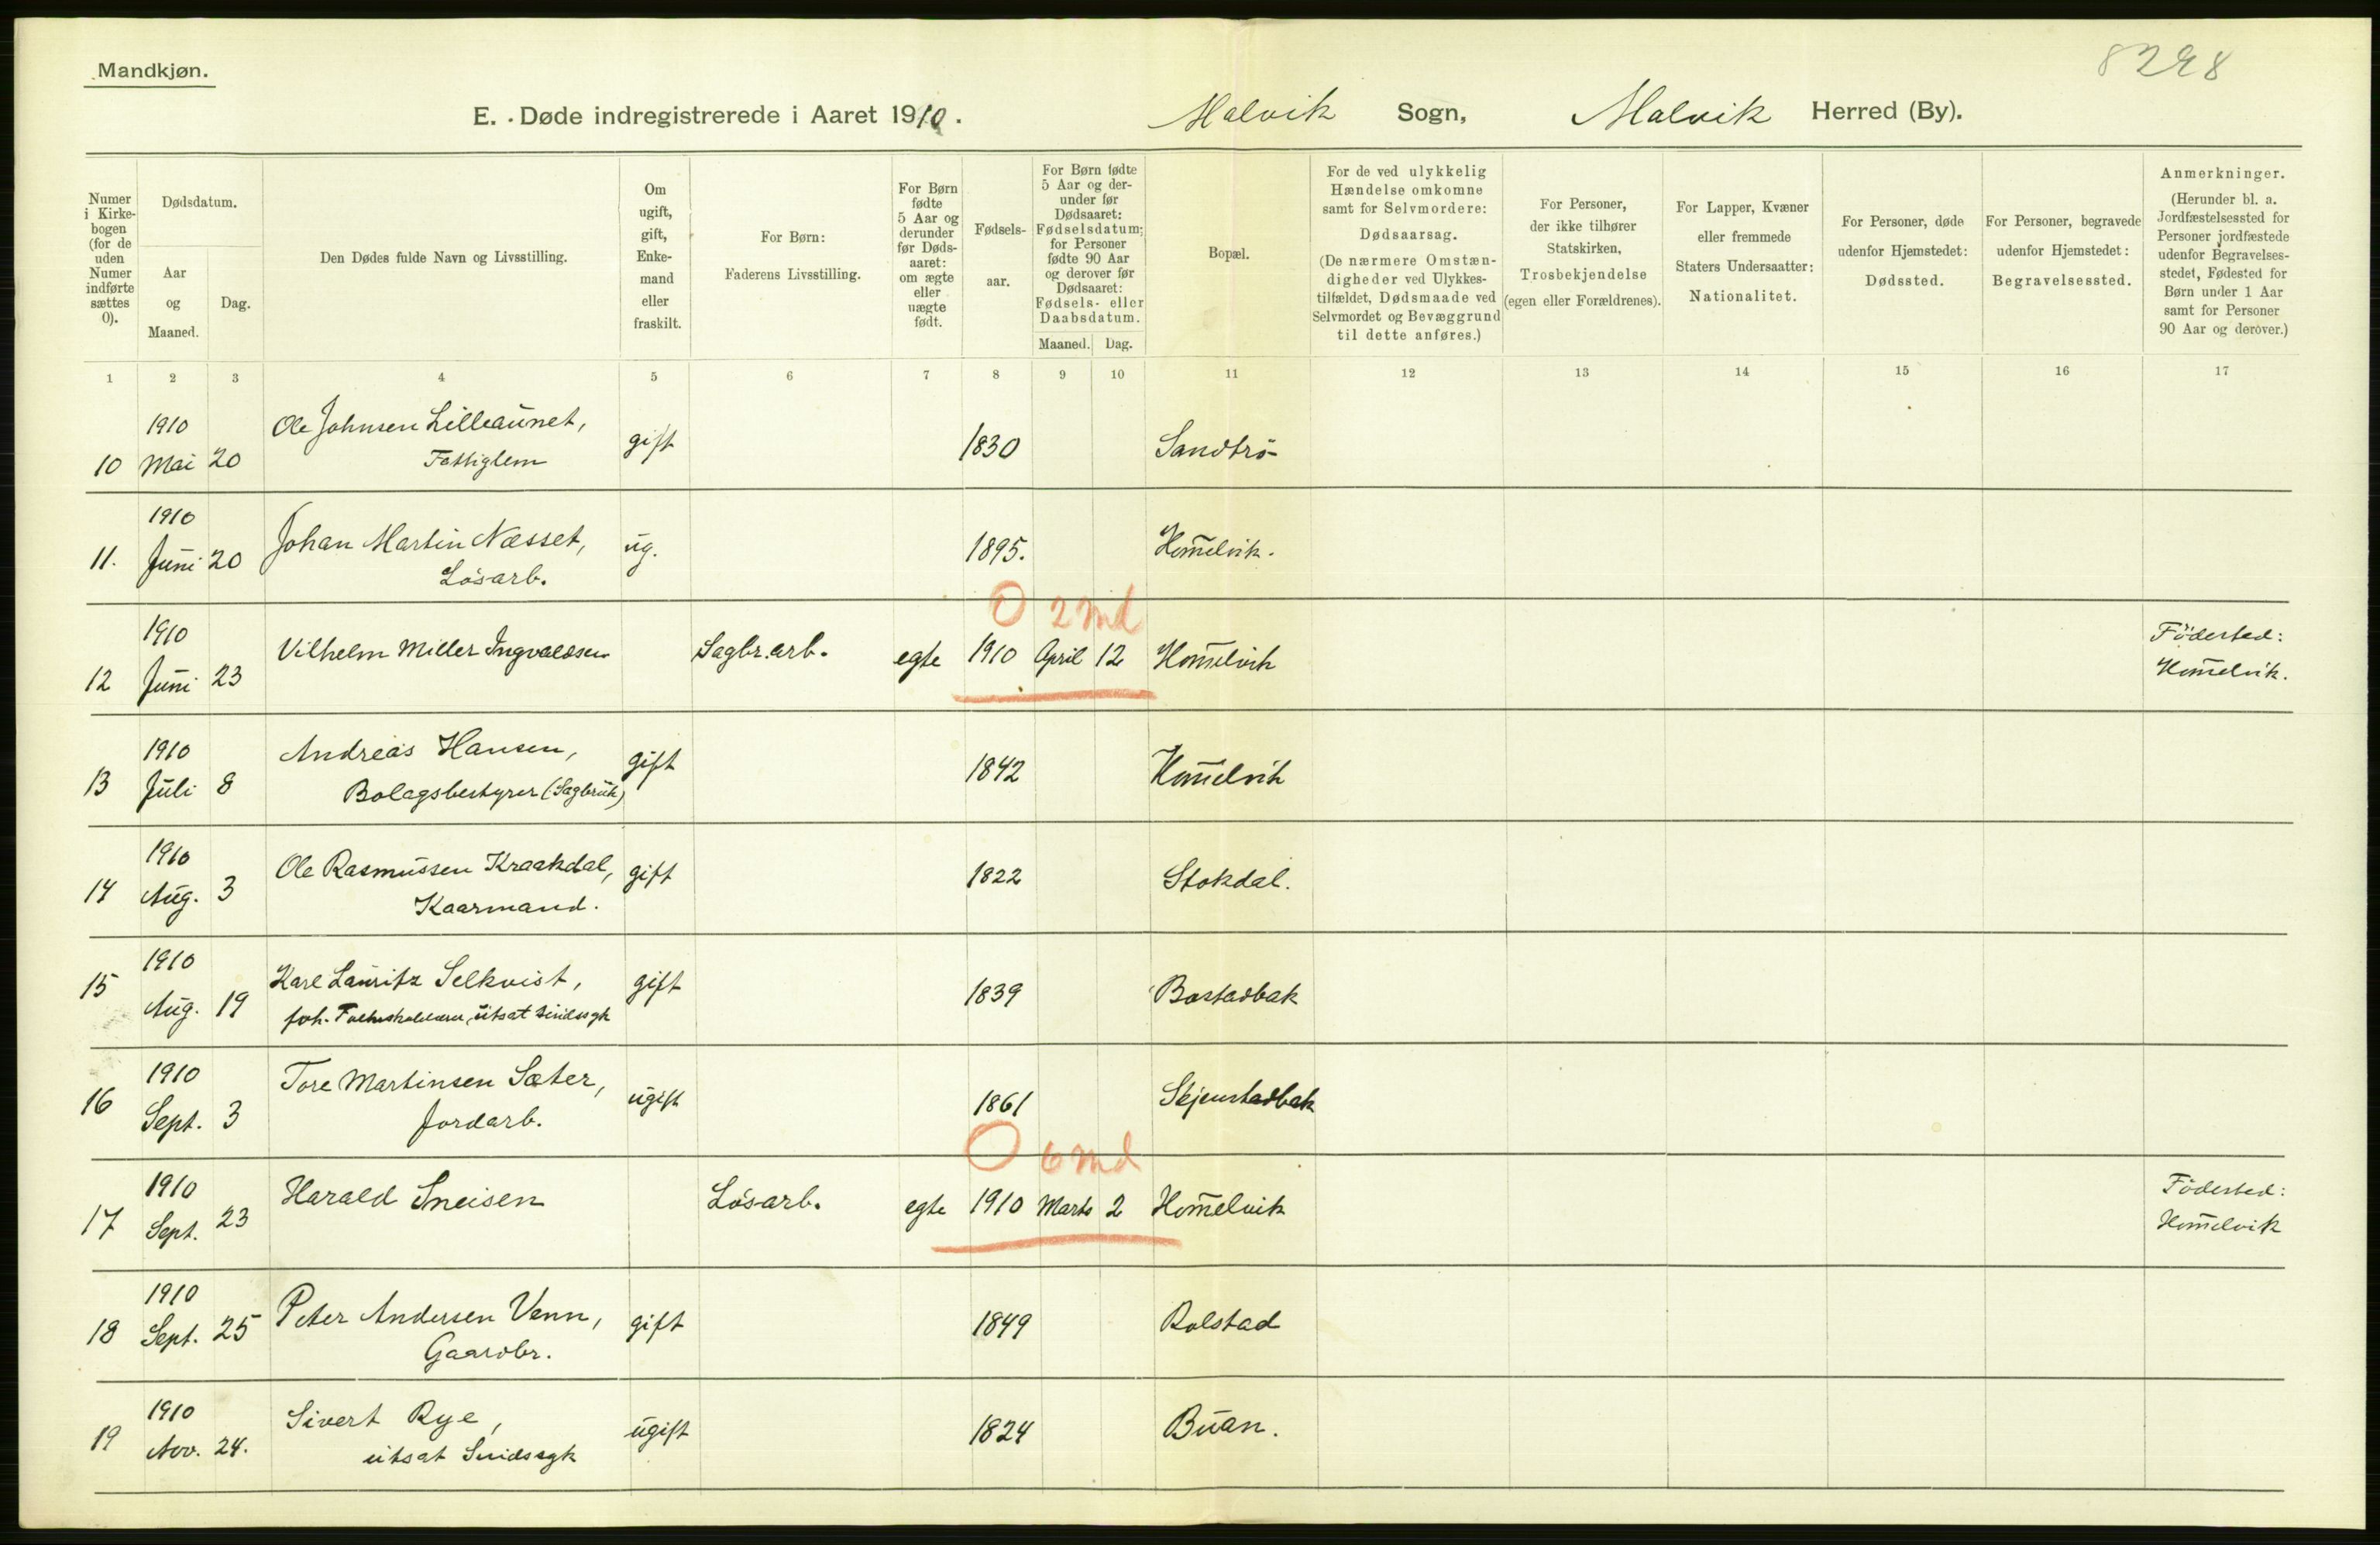 Mandkjøn.
8298
E. Døde indregistrerede i Aaret 1910. Malvik Sogn, Malvik Herred (By).
Numer i Kirke-bogen (for de uden Numer indførte sættes 0).
Dødsdatum.
Aar og Maaned.
Dag.
Den Dødes fulde Navn og Livsstilling.
Om ugift, gift, Enke-mand eller fraskilt.
For Børn: Faderens Livsstilling.
For Børn fødte 5 Aar og derunder før Døds-aaret: om ægte eller uægte født.
Fødsels-aar.
For Børn fødte 5 Aar og der-under før Dødsaaret: Fødselsdatum; for Personer fødte 90 Aar og derover før Dødsaaret: Fødsels- eller Daabsdatum.
Maaned. Dag.
Bopæl.
For de ved ulykkelig Hændelse omkomne samt for Selvmordere: Dødsaarsag. (De nærmere Omstæn-digheder ved Ulykkes-tilfældet, Dødsmaade ved Selvmordet og Bevæggrund til dette anføres.)
For Personer, der ikke tilhører Statskirken, Trosbekjendelse (egen eller Forældrenes).
For Lapper, Kvæner eller fremmede Staters Undersaatter: Nationalitet.
For Personer, døde udenfor Hjemstedet: Dødssted.
For Personer, begravede udenfor Hjemstedet: Begravelsessted.
Anmerkninger. (Herunder bl. a. Jordfæstelsessted for Personer jordfæstede udenfor Begravelses-stedet, Fødested for Børn under 1 Aar samt for Personer 90 Aar og derover.)
1 2 3 4 5 6 7 8 9 10 11 12 13 14 15 16 17
1910 Ole Johnsen Lilleaunet,
10 Mai 20 Fattiglem gift 1830 Sandtrö
1910 Johan Martin Næsset,
11. Juni 20 Lösarb. ug. 1895. Hom̄elvik.
0 2 md
1910 Vilhelm Miller Ingvaldsen Sagbr.arb. egte 1910 April 12 Hom̄elvik Födested:
12 Juni 23 Hom̄elvik.
1910 Andreas Hansen,
13 Juli 8 Bolagsbestyrer (Sagbruk) gift 1842 Hom̄elvik
1910 Ole Rasmussen Kraakdal,
14 Aug. 3 Kaarmand. gift 1822 Stokdal.
1910 Karl Lauritz Selkvist,
15 Aug. 19 utsat Sindssyk gift 1839 Bostadbak
1910 Tore Martinsen Sæter,
16 Sept. 3 Jordarb. ugift 1861 Stjenstadbak
0 6 md
1910 Harald Sneisen Lösarb. egte 1910 Marts 2 Hom̄elvik Födested:
17 Sept. 23 Hom̄elvik
1910 Peter Andersen Venn,
18 Sept. 25 Gaardbr. gift 1849 Rolstad
1910 Sivert Rye,
19 Nov. 24. utsat Sindssyk ugift 1824 Buan.